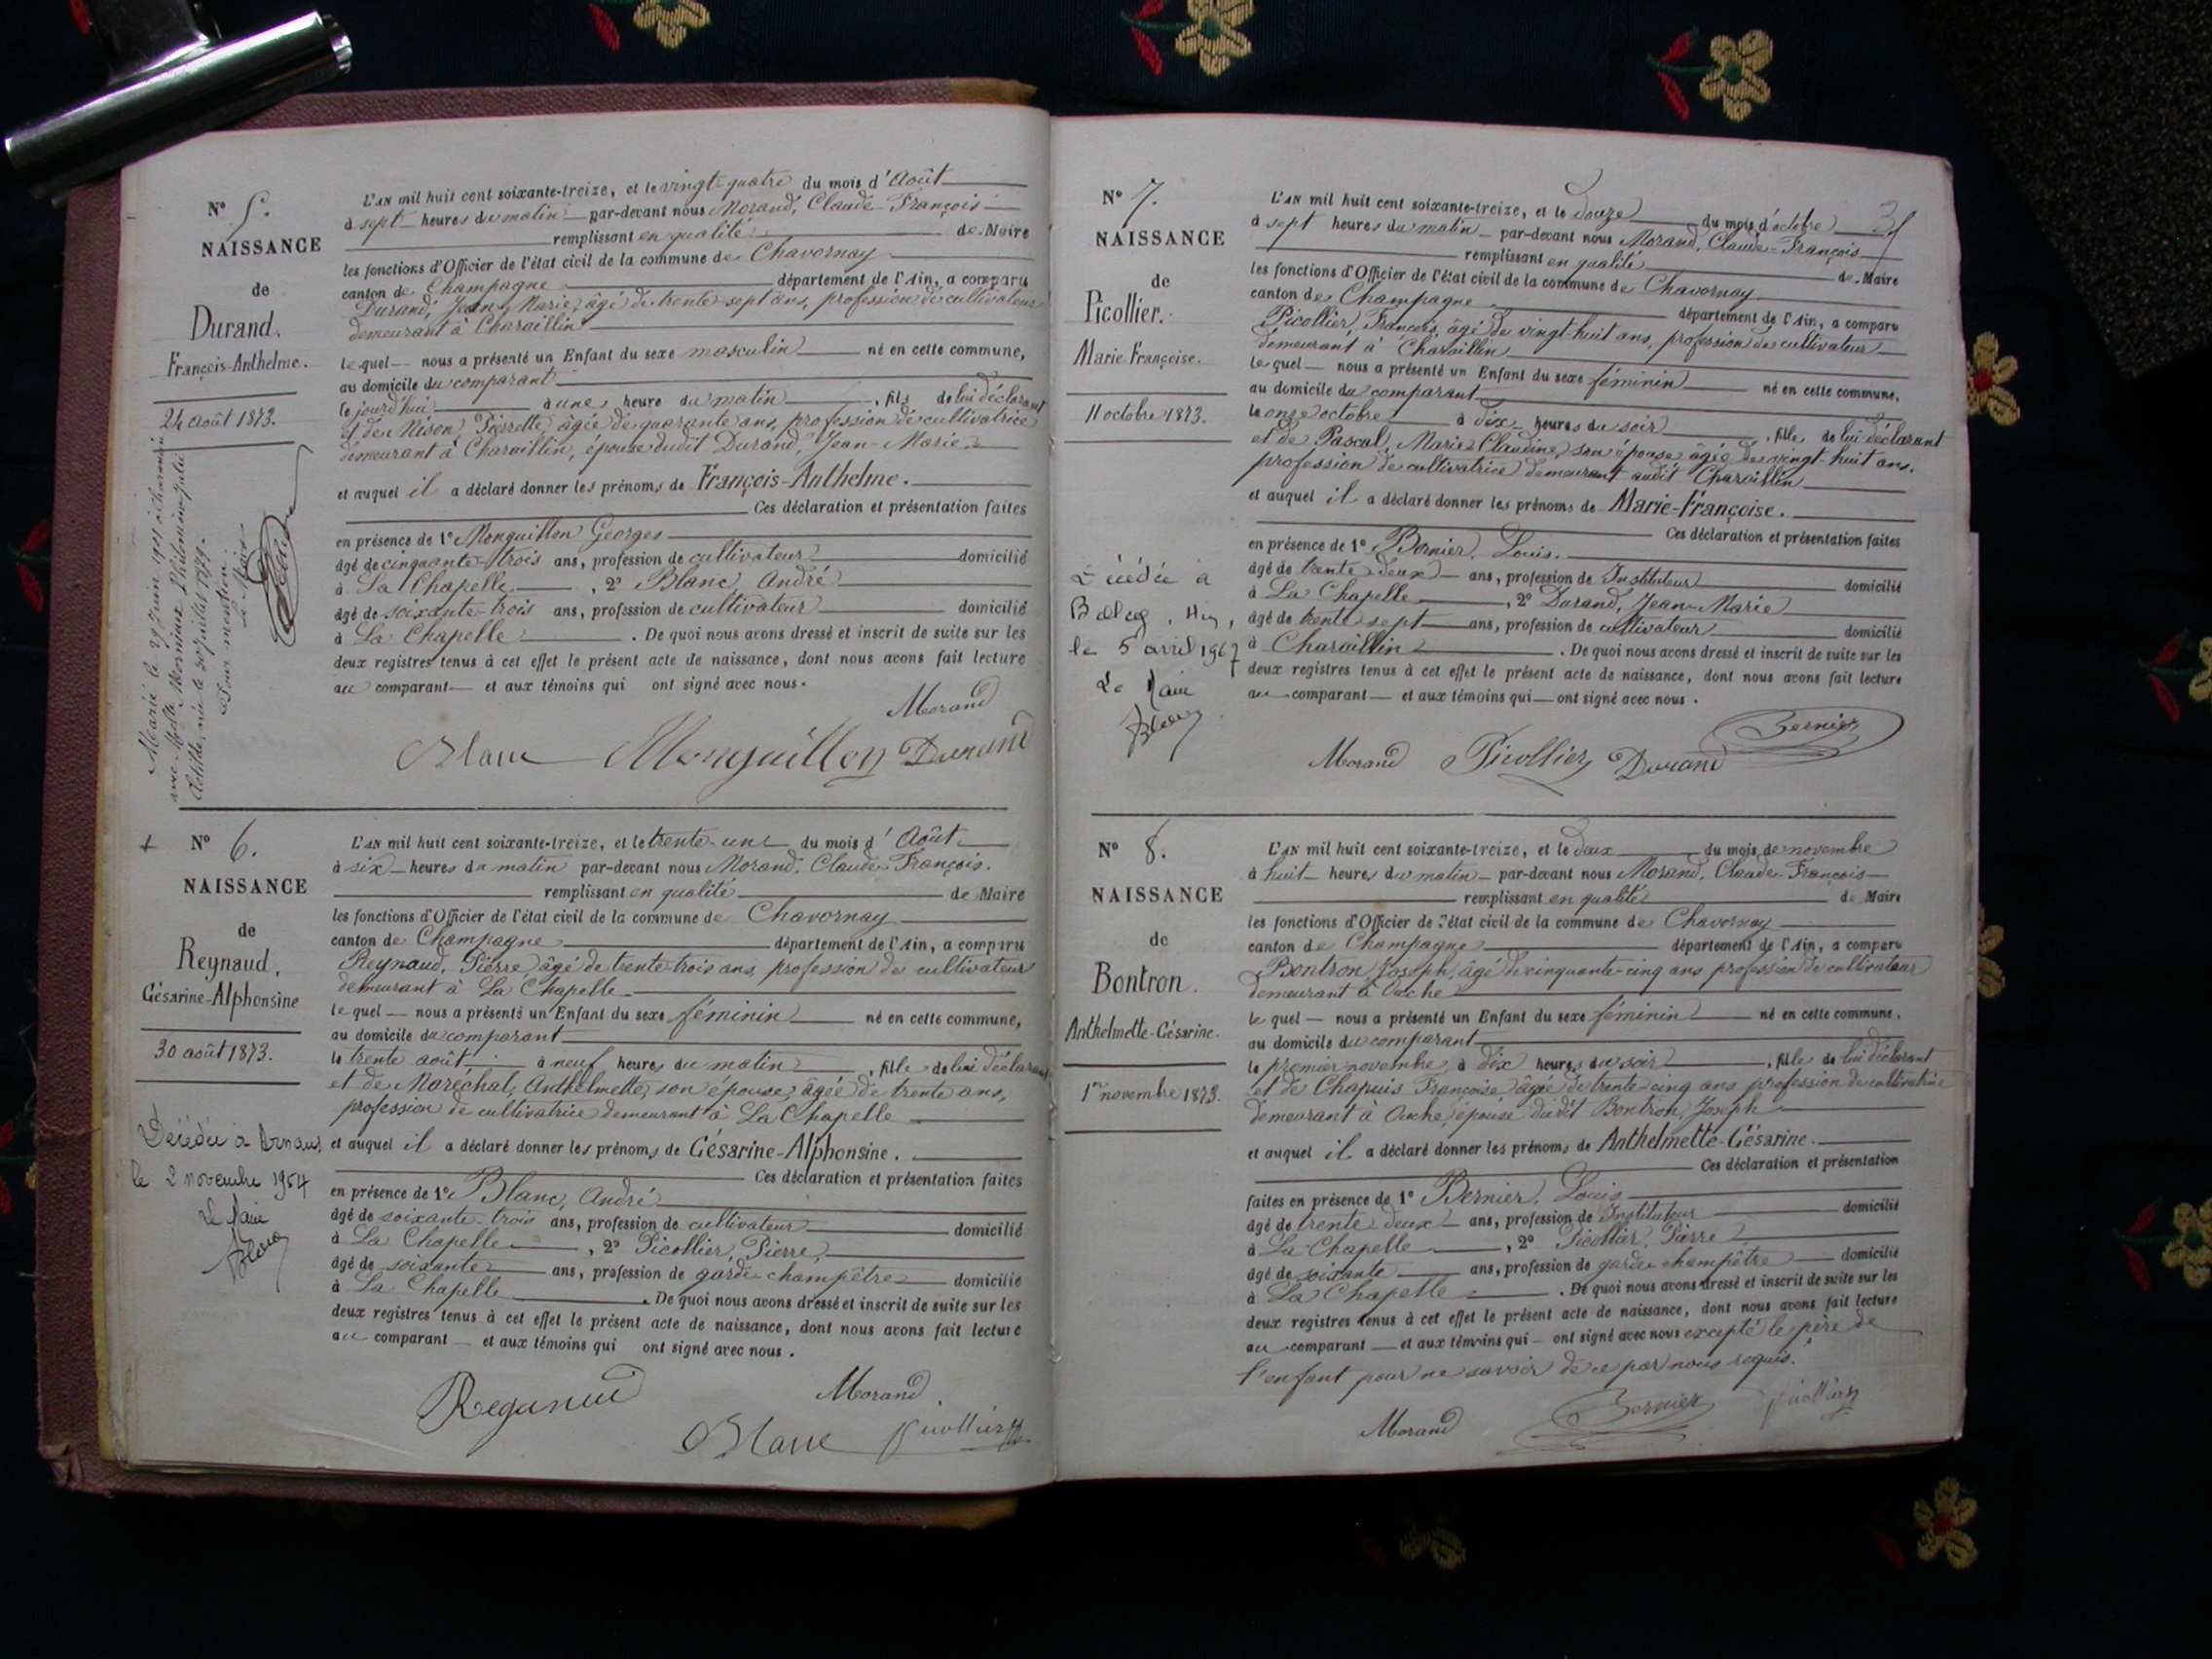 N° 5.
NAISSANCE
de
Durand,
François-Anthelme.
24 août 1873.
Marié le 29 Juin 1901 à
avec Philomène Julie
née le 30 juillet 1879.
Pour mention:
Le Maire
L'AN mil huit cent soixante-treize, et le vingt-quatre du mois d'Août
à sept heures du matin par-devant nous Morand, Claude-François
remplissant en qualité de Maire
les fonctions d'Officier de l'état civil de la commune de Chavornay
canton de Champagne département de l'Ain, a comparu
Durand, Jean-Marie, âgé de trente sept ans, profession de cultivateur
demeurant à Charaillin
lequel nous a présenté un Enfant du sexe masculin né en cette commune,
au domicile du comparant
le jourd'hui à une heure du matin, fils de lui déclarant
et de Nison Pierrette âgée de quarante ans, profession de cultivatrice
demeurant à Charaillin, épouse dudit Durand, Jean-Marie
et auquel il a déclaré donner les prénoms de François-Anthelme.
Ces déclaration et présentation faites
en présence de 1° Monguillon Georges
âgé de cinquante-trois ans, profession de cultivateur domicilié
à La Chapelle, 2° Blanc, André
âgé de soixante-trois ans, profession de cultivateur domicilié
à La Chapelle. De quoi nous avons dressé et inscrit de suite sur les
deux registres tenus à cet effet le présent acte de naissance, dont nous avons fait lecture
au comparant et aux témoins qui ont signé avec nous.
Morand
Blanc Monguillon Durand
N° 6.
NAISSANCE
de
Reynaud,
Césarine-Alphonsine
30 août 1873.
Décédée à Arnans
le 2 novembre 1954
Le Maire
L'AN mil huit cent soixante-treize, et le trente-un du mois d'Août
à six heures du matin par-devant nous Morand, Claude-François.
remplissant en qualité de Maire
les fonctions d'Officier de l'état civil de la commune de Chavornay
canton de Champagne département de l'Ain, a comparu
Reynaud, Pierre âgé de trente-trois ans, profession de cultivateur
demeurant à La Chapelle
lequel nous a présenté un Enfant du sexe féminin né en cette commune,
au domicile du comparant
le trente août à neuf heures du matin, fille de lui déclarant
et de Maréchal, Anthelmette, son épouse, âgée de trente ans,
profession de cultivatrice demeurant à La Chapelle
et auquel il a déclaré donner les prénoms de Césarine-Alphonsine.
Ces déclaration et présentation faites
en présence de 1° Blanc, André
âgé de soixante-trois ans, profession de cultivateur domicilié
à La Chapelle, 2° Picollier, Pierre,
âgé de soixante ans, profession de garde-champêtre domicilié
à La Chapelle. De quoi nous avons dressé et inscrit de suite sur les
deux registres tenus à cet effet le présent acte de naissance, dont nous avons fait lecture
au comparant et aux témoins qui ont signé avec nous.
Reynaud Morand
Blanc Picollier
N° 7.
NAISSANCE
de
Picollier.
Marie Françoise.
11 octobre 1873.
Décédée à
Belley, Ain,
le 5 avril 1967
Le Maire
L'AN mil huit cent soixante-treize, et le douze du mois d'octobre
à sept heures du matin par-devant nous Morand, Claude-François
remplissant en qualité de Maire
les fonctions d'Officier de l'état civil de la commune de Chavornay
canton de Champagne département de l'Ain, a comparu
Picollier, François, âgé de vingt-huit ans, profession de cultivateur
demeurant à Charaillin
lequel nous a présenté un Enfant du sexe féminin né en cette commune,
au domicile du comparant
le onze octobre à dix heures du soir, fille de lui déclarant
et de Pascal, Marie-Claudine son épouse âgée de vingt-huit ans.
profession de cultivatrice demeurant audit Charaillin
et auquel il a déclaré donner les prénoms de Marie-Françoise.
Ces déclaration et présentation faites
en présence de 1° Bernier, Louis.
âgé de trente-deux ans, profession de Instituteur domicilié
à La Chapelle, 2° Durand, Jean-Marie
âgé de trente sept ans, profession de cultivateur domicilié
à Charaillin. De quoi nous avons dressé et inscrit de suite sur les
deux registres tenus à cet effet le présent acte de naissance, dont nous avons fait lecture
au comparant et aux témoins qui ont signé avec nous.
Bernier
Morand Picollier Durand
N° 8.
NAISSANCE
de
Bontron.
Anthelmette-Césarine.
1er novembre 1873.
L'AN mil huit cent soixante-treize, et le deux du mois de novembre
à huit heures du matin par-devant nous Morand, Claude-François
remplissant en qualité de Maire
les fonctions d'Officier de l'état civil de la commune de Chavornay
canton de Champagne département de l'Ain, a comparu
Bontron, Joseph, âgé de cinquante-cinq ans profession de cultivateur
demeurant à Ouche
lequel nous a présenté un Enfant du sexe féminin né en cette commune,
au domicile du comparant
le premier novembre à dix heures du soir, fille de lui déclarant
et de Chapuis Françoise âgée de trente-cinq ans profession de cultivatrice
demeurant à Ouche, épouse dudit Bontron, Joseph
et auquel il a déclaré donner les prénoms de Anthelmette-Césarine.
Ces déclaration et présentation
faites en présence de 1° Bernier, Louis
âgé de trente-deux ans, profession de Instituteur domicilié
à La Chapelle, 2° Picollier, Pierre
âgé de soixante ans, profession de garde-champêtre domicilié
à La Chapelle. De quoi nous avons dressé et inscrit de suite sur les
deux registres tenus à cet effet le présent acte de naissance, dont nous avons fait lecture
au comparant et aux témoins qui ont signé avec nous excepté le père de
l'enfant pour ne savoir de ce par nous requis.
Morand Bernier Picollier